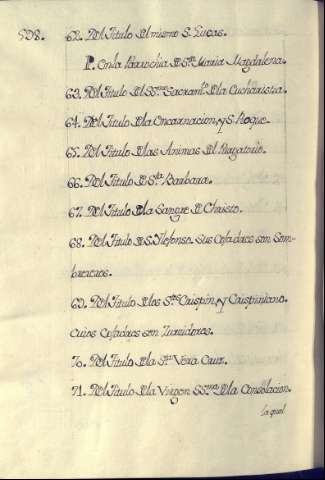 598.
62. Del Titulo del mismo S. Lucas.
P. En la Parrochia de Sta. Maria Magdalena.
63. Del Titulo del SSmo. Sacramto. de la Cucharesca.
64. Del Titulo de la Encarnacion, y S. Roque.
65. Del Titulo de las Animas del Purgatorio.
66. Del Titulo de Sta. Barbara.
67. Del Titulo de la Sangre de Christo.
68. Del Titulo de S. Ildefonso. Sus Cofadres son Som-
brereros.
69. Del Titulo de los Stos. Crispin, y Crispiniano.
Cuios Cofadres son Zurradores.
70. Del Titulo de la Sta. Vera Cruz.
71. Del Titulo de la Virgen SSma. de la Consolacion.
la qual